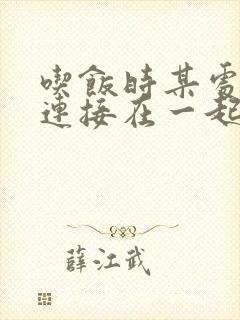 喫飯時某處
連接在一起
薛江武